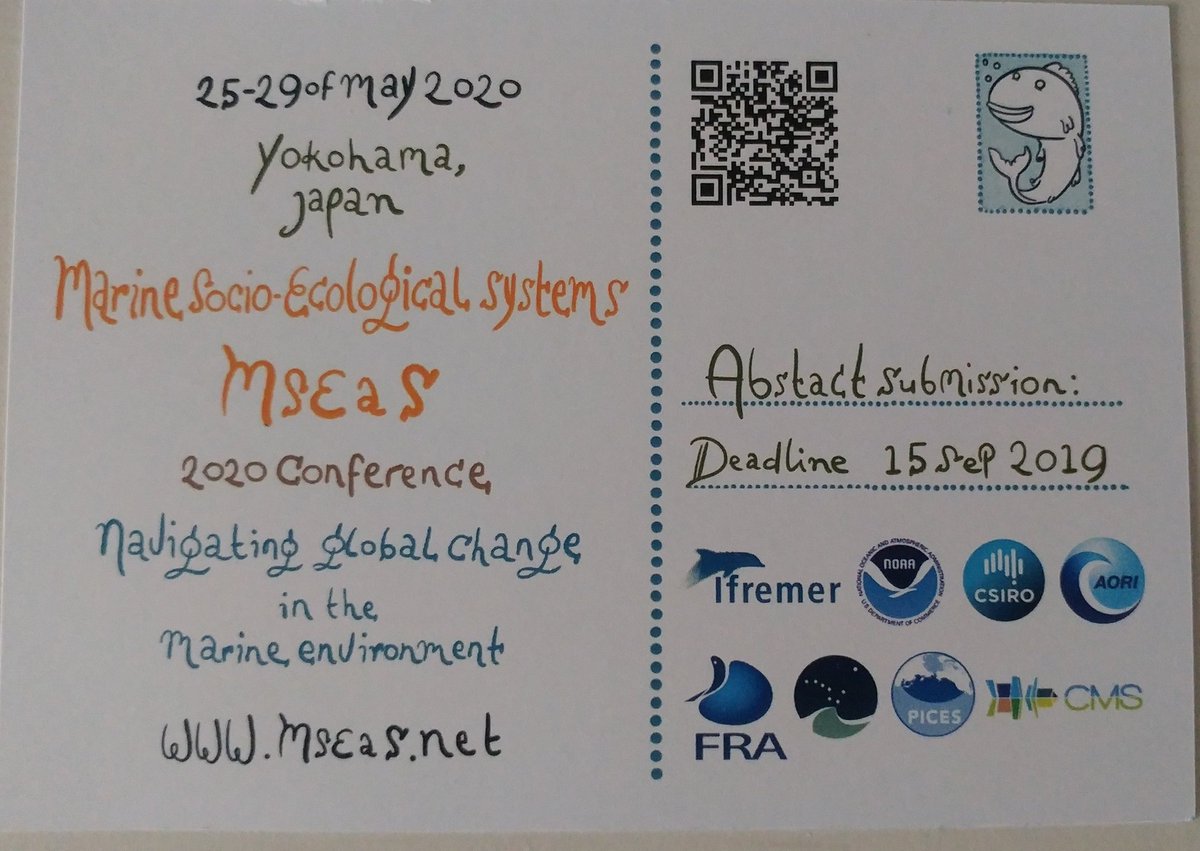 25-29 of May 2020
Yokohama,
Japan
Marine Socio-Ecological Systems
MSEaS
2020 Conference
Navigating global change
in the
Marine environment
www.mseas.net
Abstact submission:
Deadline 15 Sep 2019
Ifremer
NATIONAL OCEANIC AND ATMOSPHERIC ADMINISTRATION
NOAA
U.S. DEPARTMENT OF COMMERCE
CSIRO
AORI
FRA
PICES
CMS